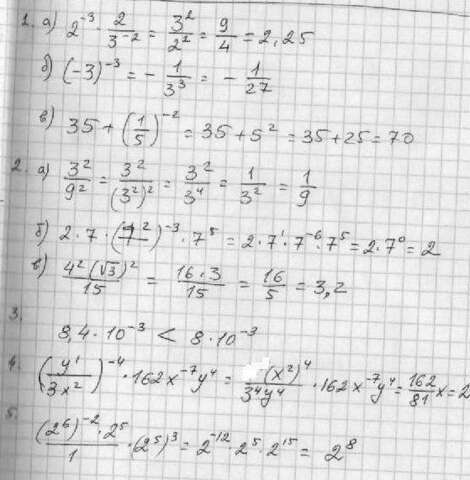 1. а) 2⁻³ · 2/3⁻² = 3²/2² = 9/4 = 2,25
б) (-3)⁻³ = - 1/3³ = - 1/27
в) 35 + (1/5)⁻² = 35 + 5² = 35 + 25 = 70
2. а) 3²/9² = 3²/(3²)² = 3²/3⁴ = 1/3² = 1/9
б) 2 · 7 · (7²)⁻³ · 7⁵ = 2 · 7¹ · 7⁻⁶ · 7⁵ = 2 · 7⁰ = 2
в) 4²(√3)²/15 = 16 · 3/15 = 16/5 = 3,2
3.
8,4 · 10⁻³ < 8 · 10⁻³
4. (y¹/3x²)⁻⁴ · 162x⁻⁷y⁴ = (x²)⁴/3⁴y⁴ · 162x⁻⁷y⁴ = 162/81 x = 2
5.
(2⁶)⁻² · 2⁵/1 · (2⁵)³ = 2⁻¹² · 2⁵ · 2¹⁵ = 2⁸